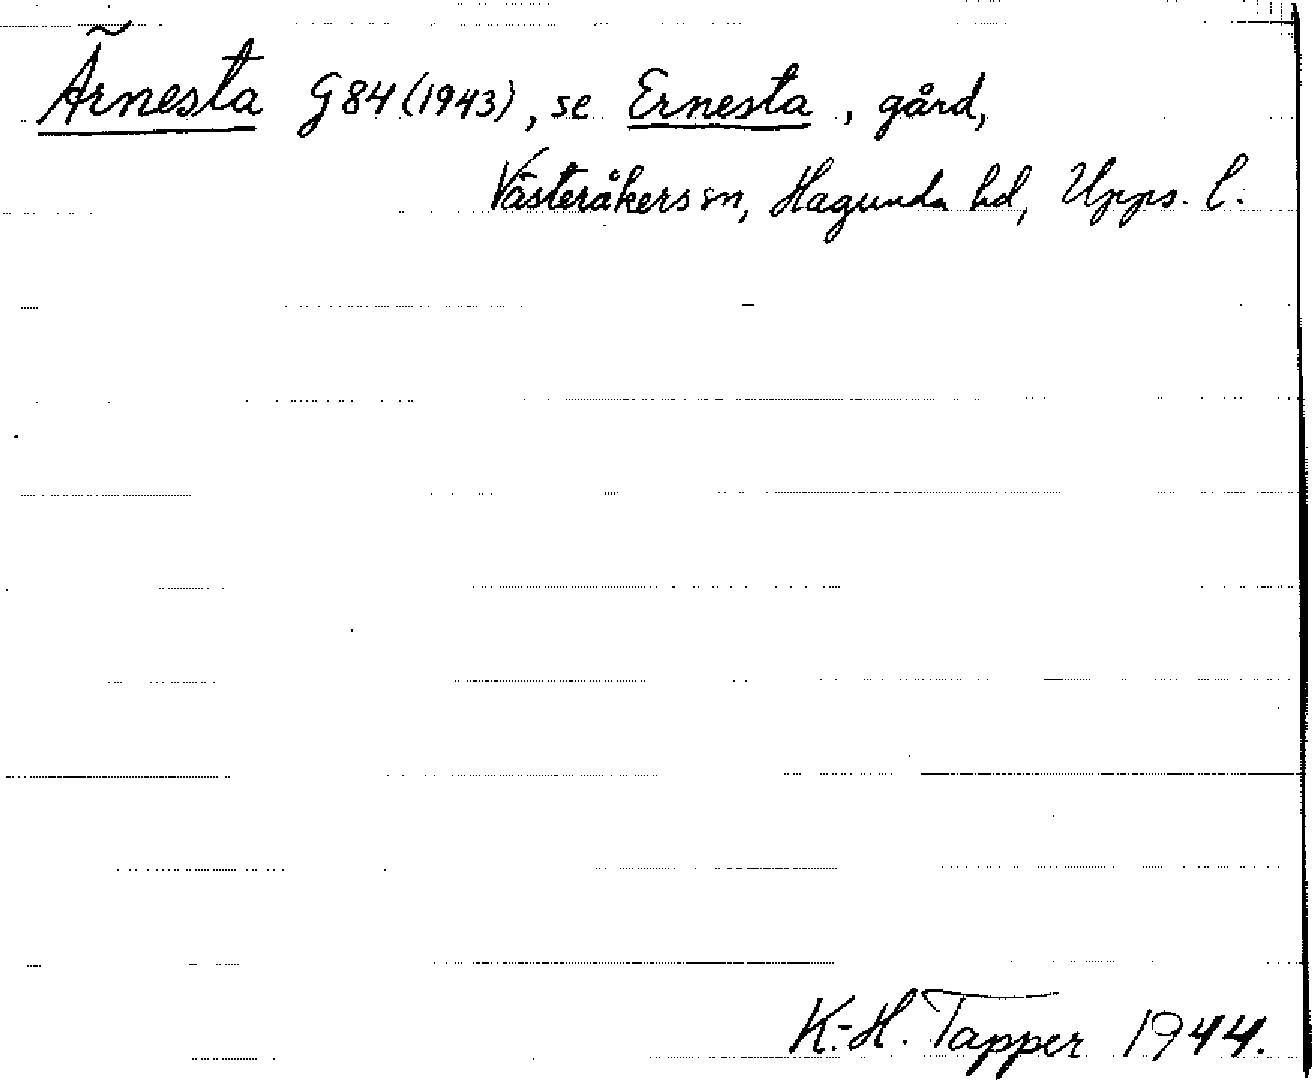 Ärnesta G 84 (1943), se Ernesta, gård,
Västeråkers sn, Hagunda hd, Upps. l.
K.-H. Tapper 1944.